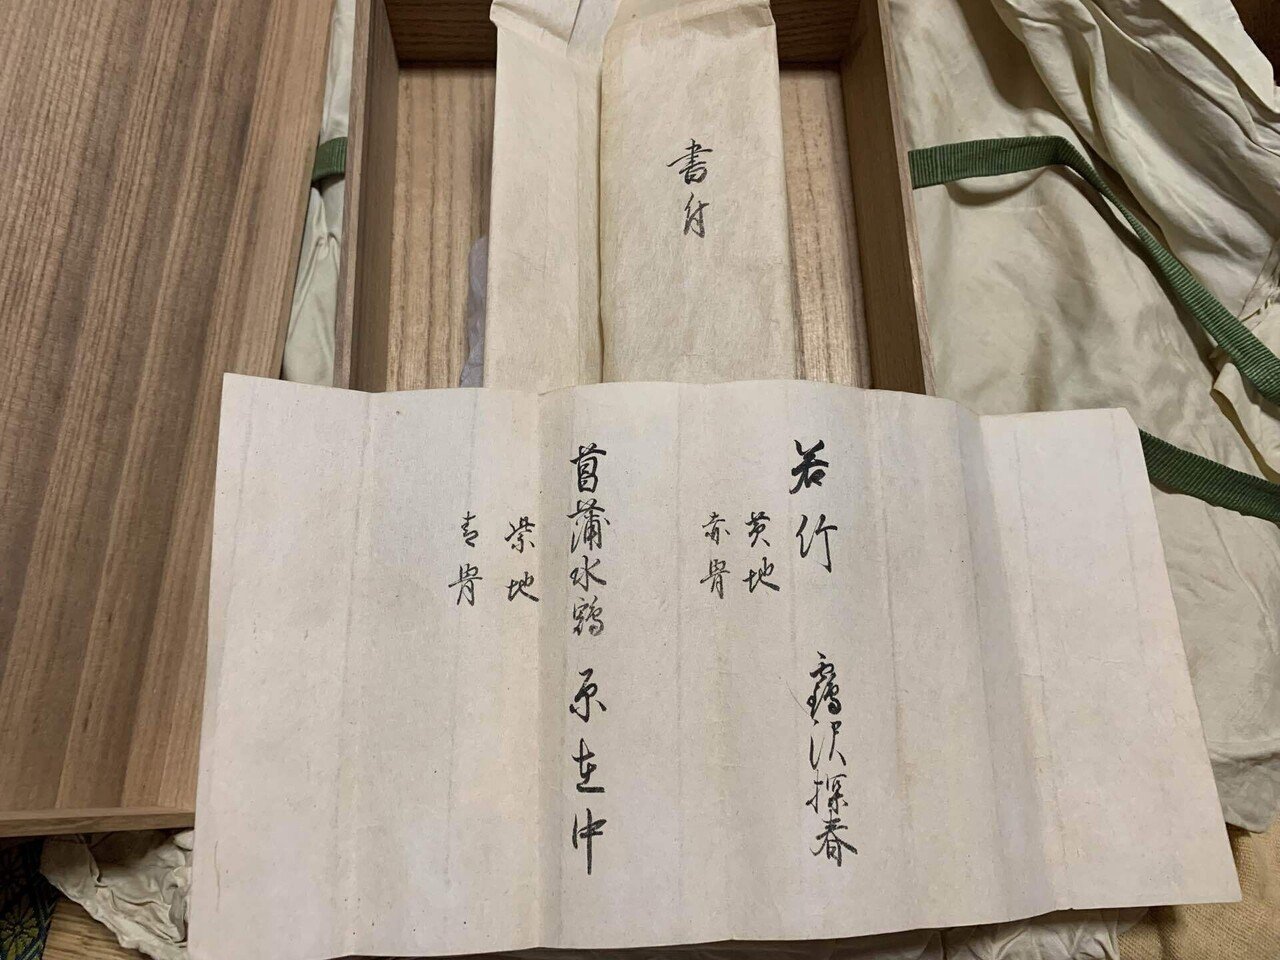 書付
若竹 鶴沢探春
黄地
赤骨
菖蒲水鶏 原在中
紫地
青骨